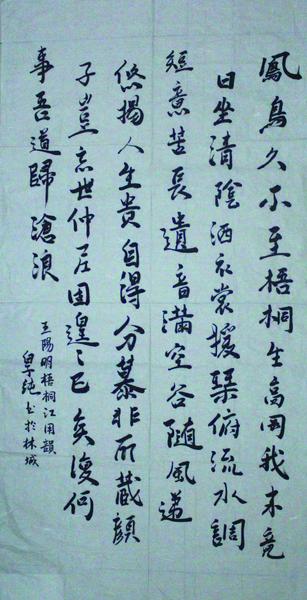 鳳鳥久不至梧桐生高岡我来竟
日坐清陰洒衣裳援琴俯流水調
短意苦長遺音滿空谷隨風遞
悠揚人生貴自得外慕非所藏顏
子豈忘世仲尼固遑〻已矣復何
事吾道歸滄浪
王陽明梧桐江用韻
书於林城